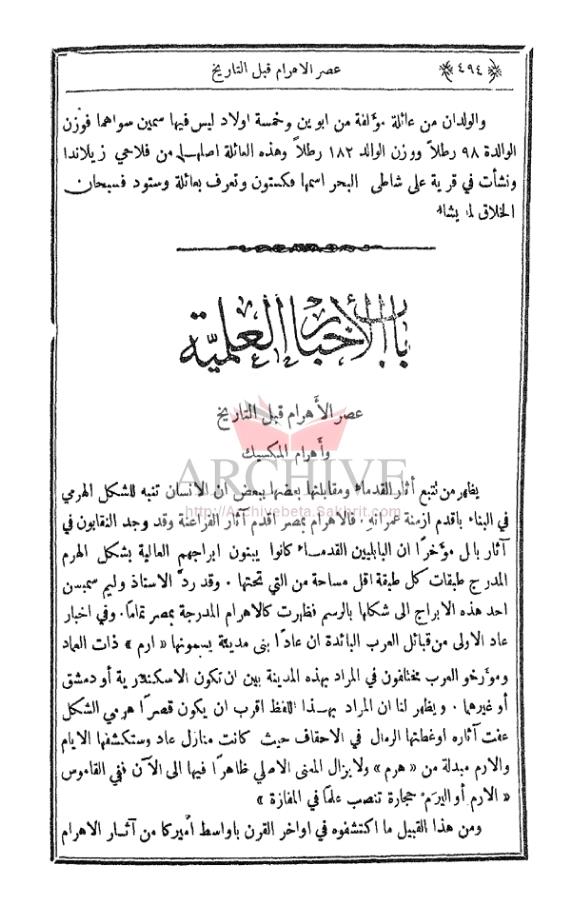 ﴿٤٩٤﴾ عصر الاهرام قبل التاريخ
والولدان من عائلة مؤلفة من ابوين وخمسة اولاد ليس فيها سمين سواهما فوزن
الوالدة ٩٨ رطلاً ووزن الوالد ١٨٢ رطلاً وهذه العائلة اصلها من فلاحي زيلاندا
ونشأت في قرية على شاطئ البحر اسمها فكستون وتعرف بعائلة وستود فسبحان
الخلاق لما يشاء
باب الأخبار العلمية
عصر الأهرام قبل التاريخ
وأهرام المكسيك
ARCHIVE
http://Archivebeta.Sakhrit.com
يظهر من تتبع آثار القدماء ومقابلتها بعضها ببعض ان الانسان تنبه للشكل الهرمي
في البناء بأقدم ازمنة عمرانه. فالاهرام بمصر اقدم آثار الفراعنة وقد وجد النقابون في
آثار بابل مؤخرًا ان البابليين القدماء كانوا يبنون ابراجهم العالية بشكل الهرم
المدرج طبقات كل طبقة اقل مساحة من التي تحتها. وقد ردّ الاستاذ وليم سمبسن
احد هذه الابراج الى شكلها بالرسم فظهرت كالاهرام المدرجة بمصر تمامًا. وفي اخبار
عاد الاولى من قبائل العرب البائدة ان عادًا بنى مدينة يسمونها « ارم » ذات العماد
ومؤرخو العرب مختلفون في المراد بهذه المدينة بين ان تكون الاسكندرية أو دمشق
أو غيرهما. ويظهر لنا ان المراد بهذا اللفظ اقرب ان يكون قصرًا هرمي الشكل
عفت آثاره اوغطتها الرمال في الاحقاف حيث كانت منازل عاد وستكشفها الايام
والارم مبدلة من « هرم » ولا يزال المعنى الاصلي ظاهرًا فيها الى الآن ففي القاموس
« الارم أو اليرم حجارة تنصب علمًا في المفازة »
ومن هذا القبيل ما اكتشفوه في اواخر القرن باواسط أميركا من آثار الاهرام